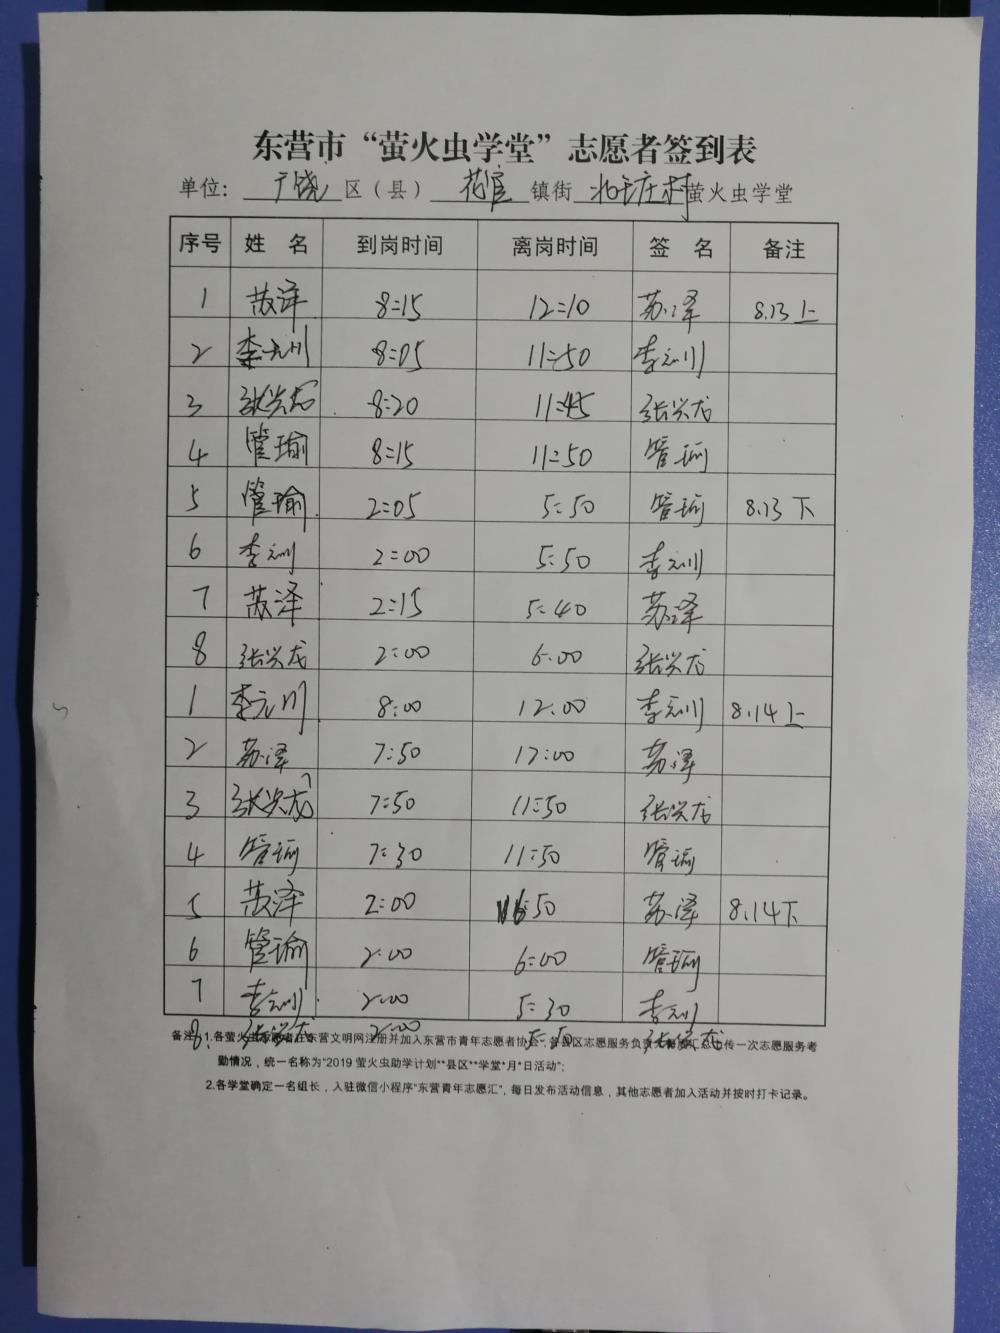 东营市“萤火虫学堂”志愿者签到表
单位: 广饶 区（县） 花官 镇街 萤火虫学堂
序号 姓 名 到岗时间 离岗时间 签 名 备注
1 苏泽 8:15 12:10 苏泽 8.13上
2 李元川 8:05 11:50 李元川
3 张兴龙 8:20 11:45 张兴龙
4 管瑜 8:15 11:50 管瑜
5 管瑜 2:05 5:50 管瑜 8.13 下
6 李元川 2:00 5:50 李元川
7 苏泽 2:15 5:40 苏泽
8 张兴龙 2:00 6:00 张兴龙
1 李元川 8:00 12:00 李元川 8.14上
2 苏泽 7:50 12:00 苏泽
3 张兴龙 7:50 11:50 张兴龙
4 管瑜 7:30 11:50 管瑜
5 苏泽 2:00 :50 苏泽 8.14下
6 管瑜 2:00 6:00 管瑜
7 李元川 2:00 5:30 李元川
8. 张兴龙 2:00 5:50 张兴龙
备注:1.各萤火虫志愿者在东营文明网注册并加入东营市青年志愿者协会,各县区志愿服务负责上传一次志愿服务考
勤情况，统一名称为“2019 萤火虫助学计划**县区**学堂*月*日活动”;
2.各学堂确定一名组长，入驻微信小程序“东营青年志愿汇”, 每日发布活动信息，其他志愿者加入活动并按时打卡记录。